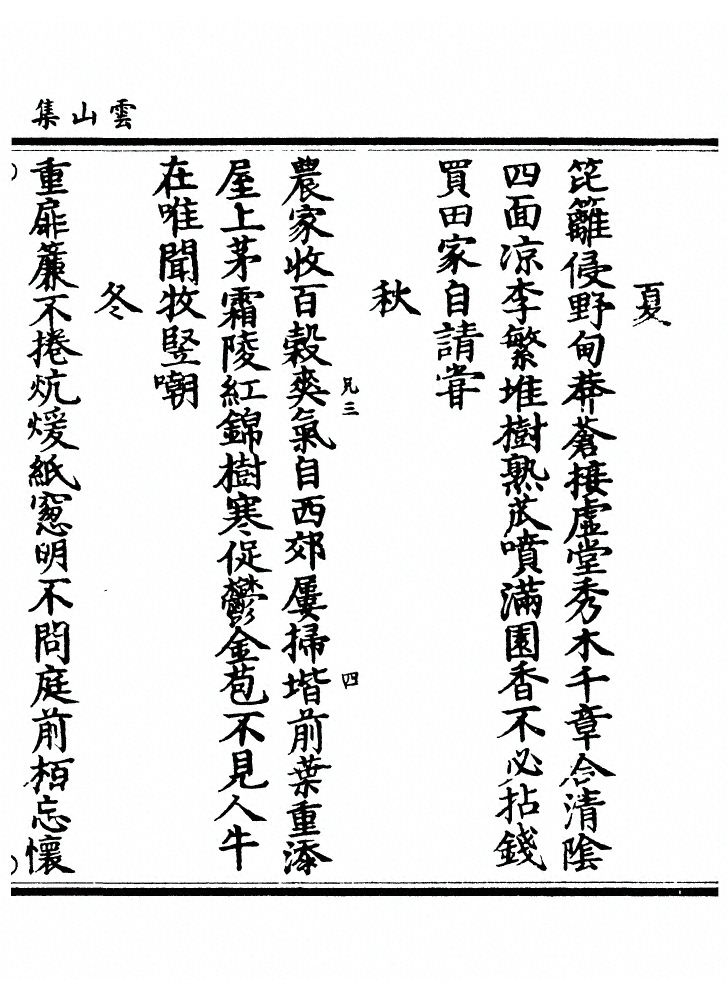 雲山集
夏
笆籬侵野甸莽蒼接虛堂秀木千章合清陰
四面凉李繁堆樹熟苽噴滿園香不必拈錢
買田家自請甞
秋
兄三
四
農家收百穀爽氣自西郊屢掃堦前葉重添
屋上茅霜陵紅錦樹寒促鬱金苞不見人牛
在唯聞牧竪嘲
冬
重扉簾不捲炕煖紙窻明不問庭前栢忘懷